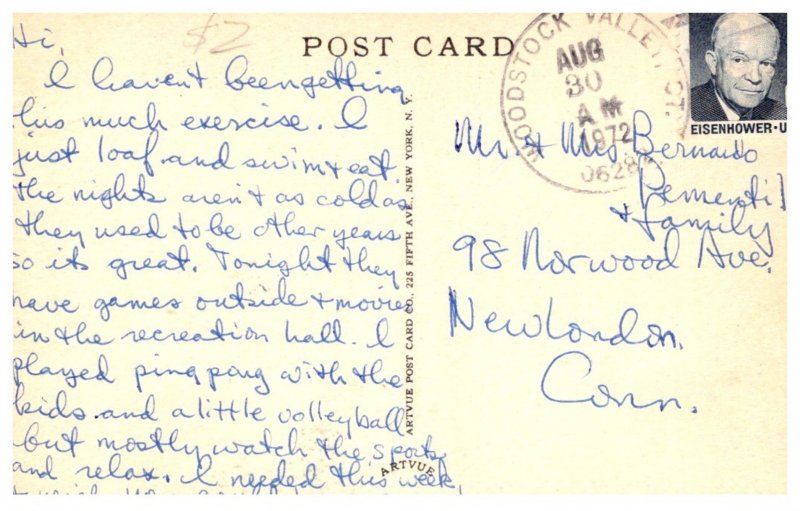 Hi,
$2
I haven't been getting
this much exercise. I
just loaf and swim + eat
the nights aren't as cold as
they used to be other years
so its great. Tonight they
have games outside + movies
in the recreation hall. I
played ping pong with the
kids and a little volleyball
but mostly watch the sports
and relax. I needed this week,
POST CARD
ARTVUE POST CARD CO., 225 FIFTH AVE., NEW YORK, N. Y.
ARTVUE
WOODSTOCK VALLEY, CT.
AUG
30
AM
1972
0628
EISENHOWER·U
Mr. + Mrs Bernardo
+ family
98 Norwood Ave.
New London.
Conn.